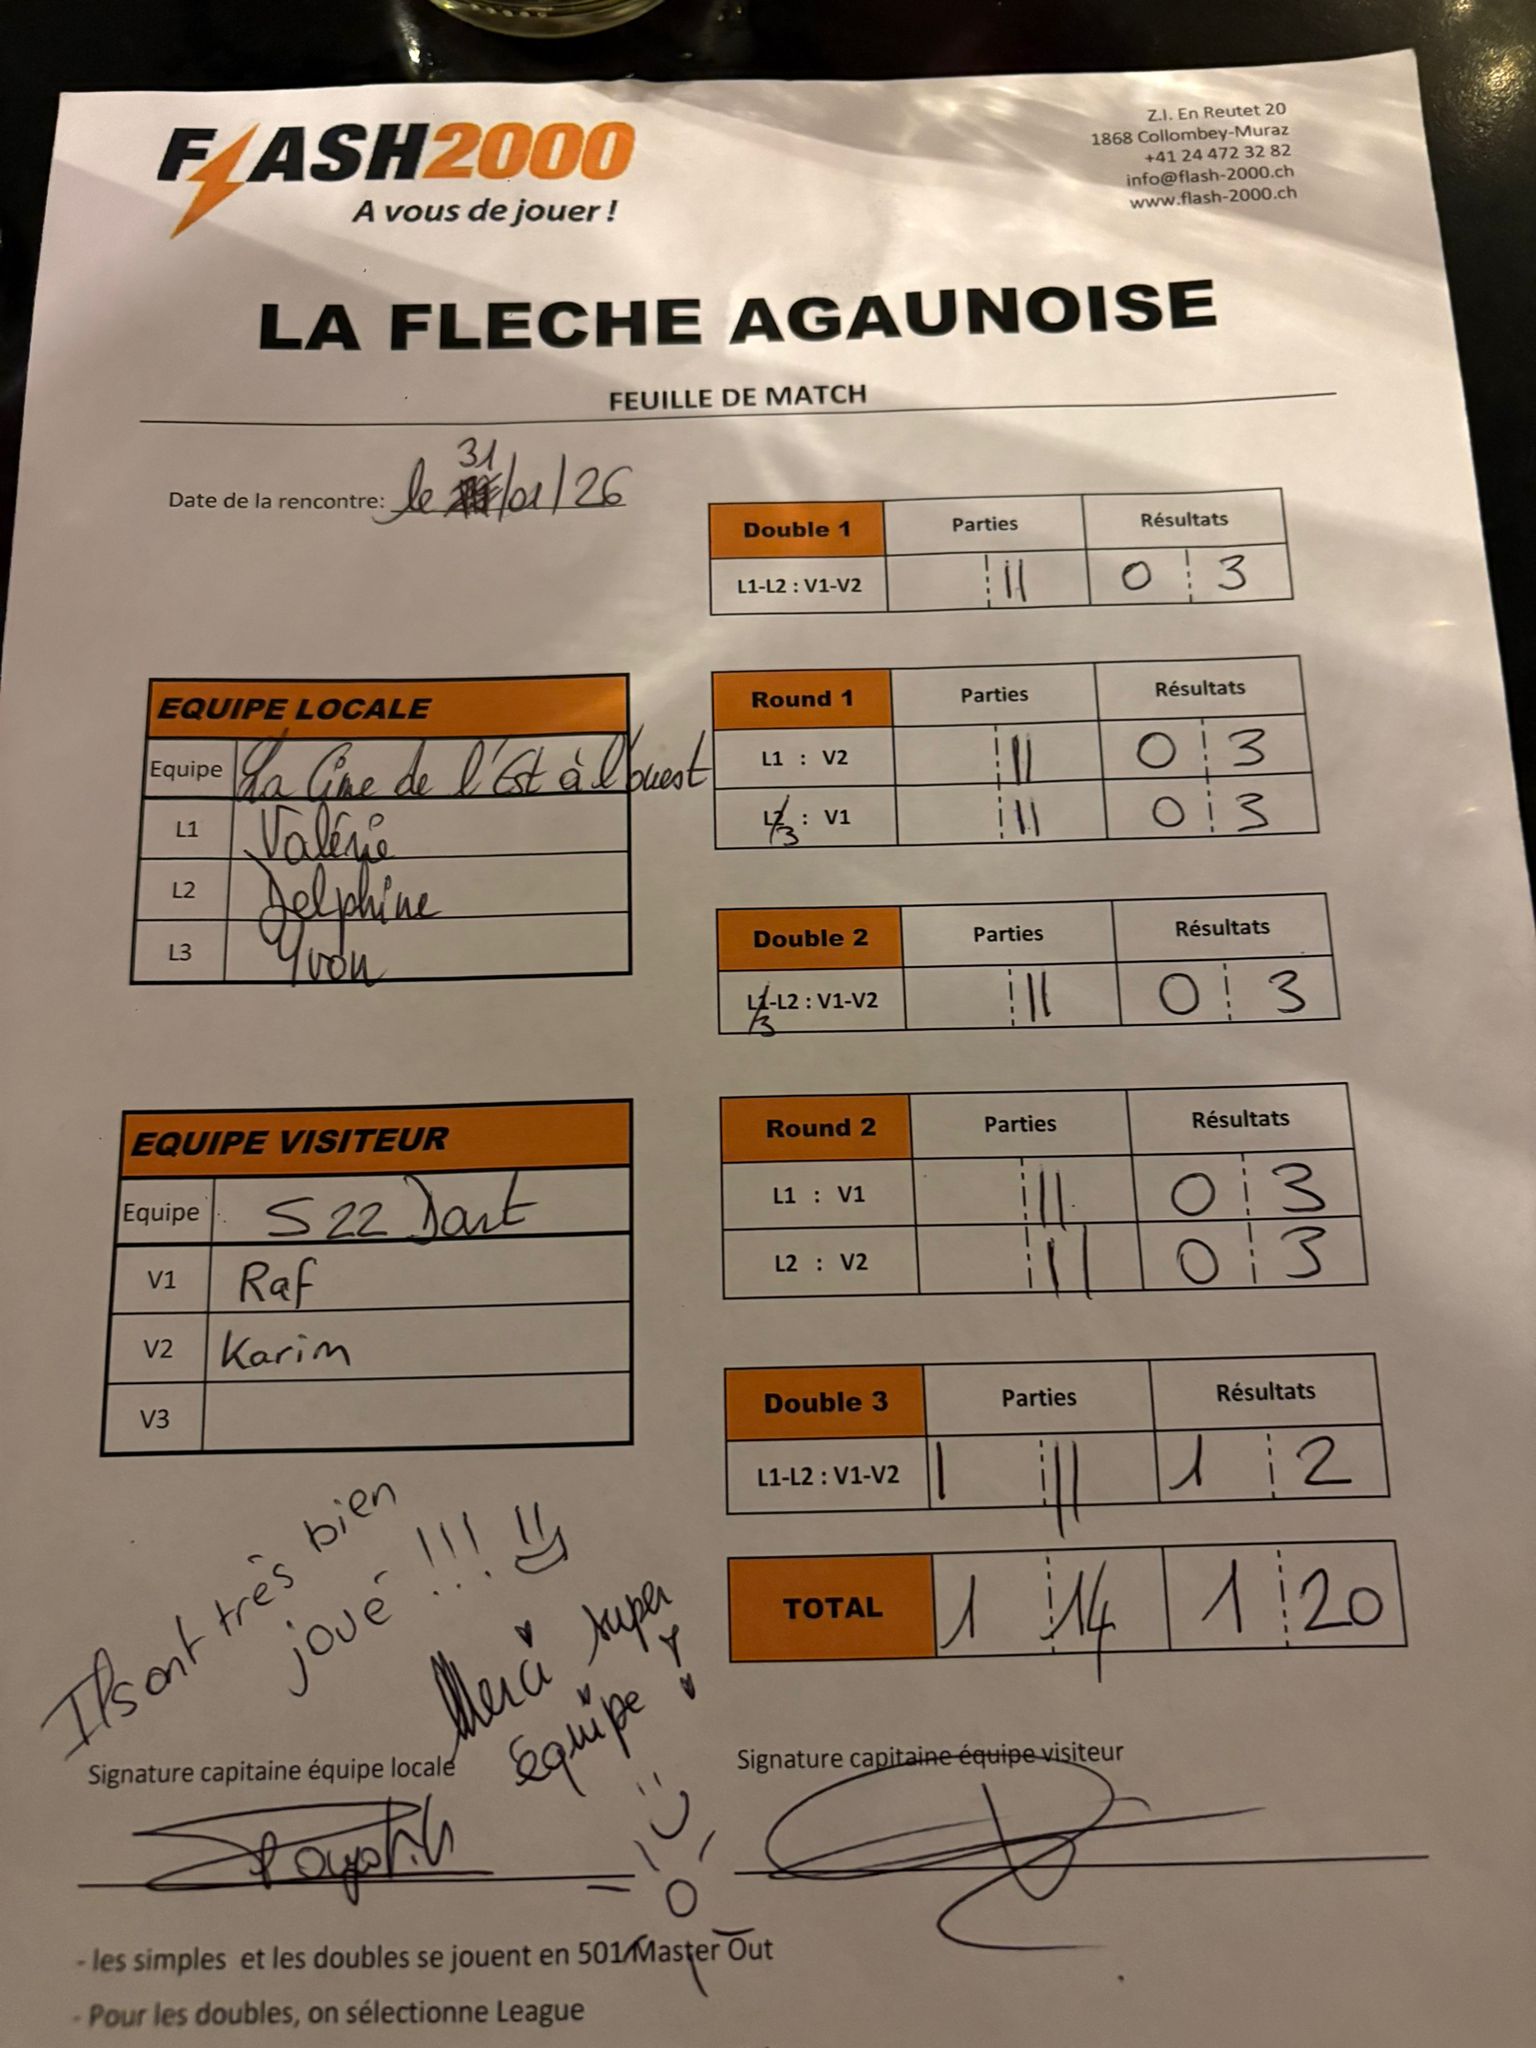 FLASH2000
A vous de jouer !
Z.I. En Reutet 20
1868 Collombey-Muraz
+41 24 472 32 82
info@flash-2000.ch
www.flash-2000.ch
LA FLECHE AGAUNOISE
FEUILLE DE MATCH
Date de la rencontre: le 31/01/26
Double 1 Parties Résultats
L1-L2 : V1-V2 || 0 3
EQUIPE LOCALE
Equipe La Cime de l'Est à l'ouest
L1 Valérie
L2 Delphine
L3 Yvon
Round 1 Parties Résultats
L1 : V2 || 0 3
L3 : V1 || 0 3
Double 2 Parties Résultats
L3-L2 : V1-V2 || 0 3
EQUIPE VISITEUR
Equipe S22 Dart
V1 Raf
V2 Karim
V3
Round 2 Parties Résultats
L1 : V1 || 0 3
L2 : V2 || 0 3
Double 3 Parties Résultats
L1-L2 : V1-V2 | || 1 2
TOTAL 1 14 1 20
Ils ont très bien
joué !!!
Merci super
équipe !
Signature capitaine équipe locale
Signature capitaine équipe visiteur
- les simples et les doubles se jouent en 501 Master Out
- Pour les doubles, on sélectionne League